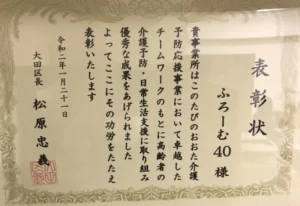 表彰状
ふろーむ40様
貴事業所はこのたびのおおた介護
予防応援事業において卓越した
チームワークのもとに高齢者の
介護予防・日常生活支援に取り組み
優秀な成果をあげられました
よってここにその功労をたたえ
表彰いたします
令和二年一月二十一日
大田区長 松原忠義